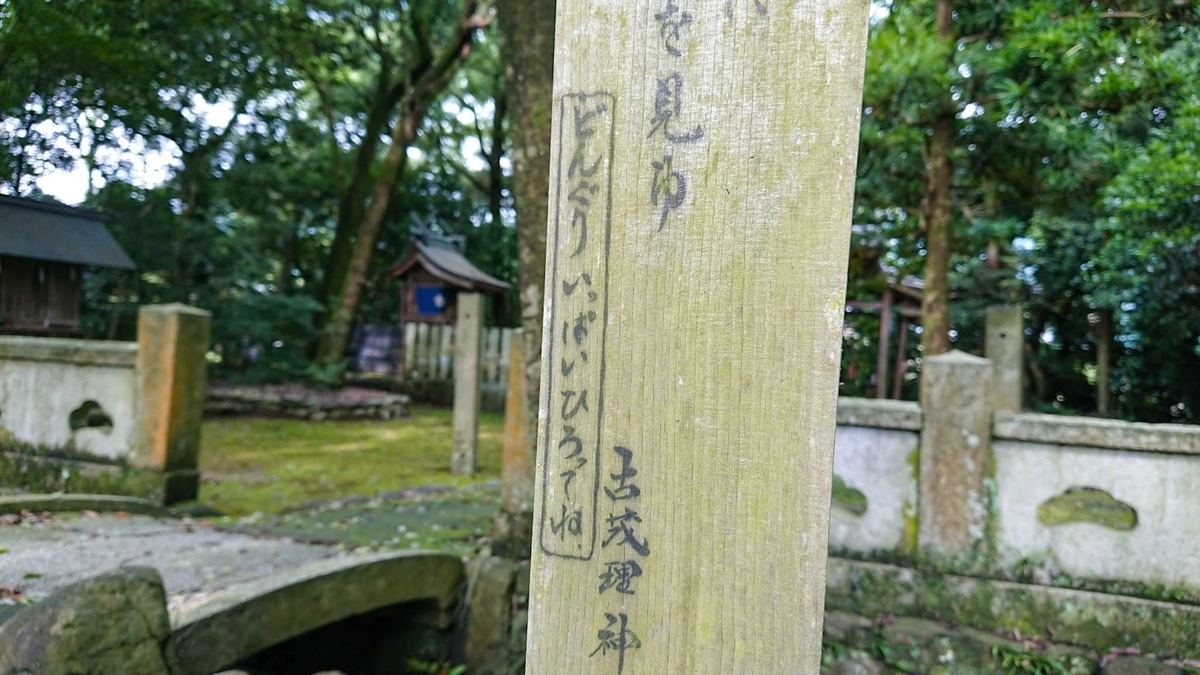 を見ゆ
古茂理神
どんぐりいっぱいひろてね